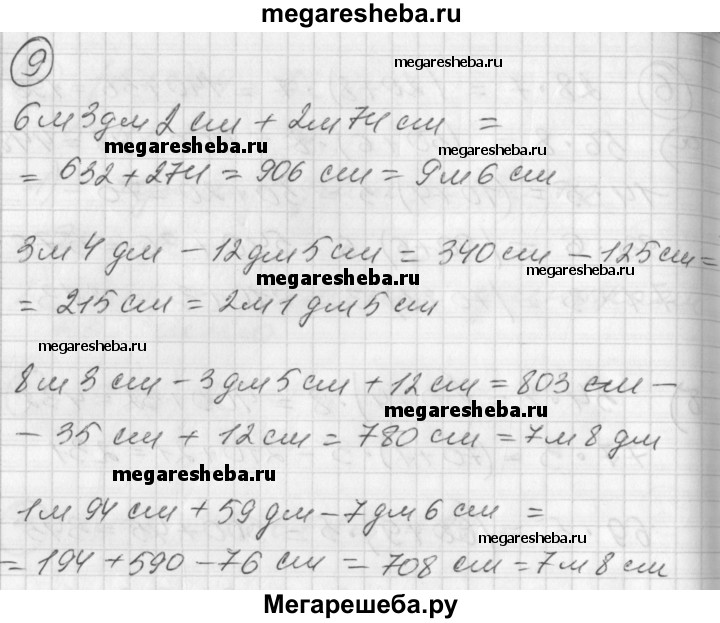 megaresheba.ru
9
megaresheba.ru
6м3дм2см + 2м74см =
megaresheba.ru
megaresheba.ru
= 632+274 = 906 см = 9м6см
3м4дм - 12дм5см = 340см - 125см =
megaresheba.ru
megaresheba.ru
= 215см = 2м1дм5см
megaresheba.ru
8м3см - 3дм5см + 12см = 803см -
megaresheba.ru
- 35см + 12см = 780см = 7м8дм
megaresheba.ru
1м94см + 59дм - 7дм6см =
megaresheba.ru
= 194+590-76см = 708см = 7м8см
Мегарешеба.ру